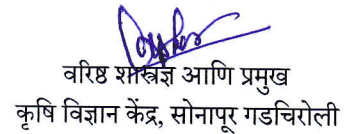 वरिष्ठ शास्त्रज्ञ आणि प्रमुख
कृषि विज्ञान केंद्र, सोनापूर गडचिरोली